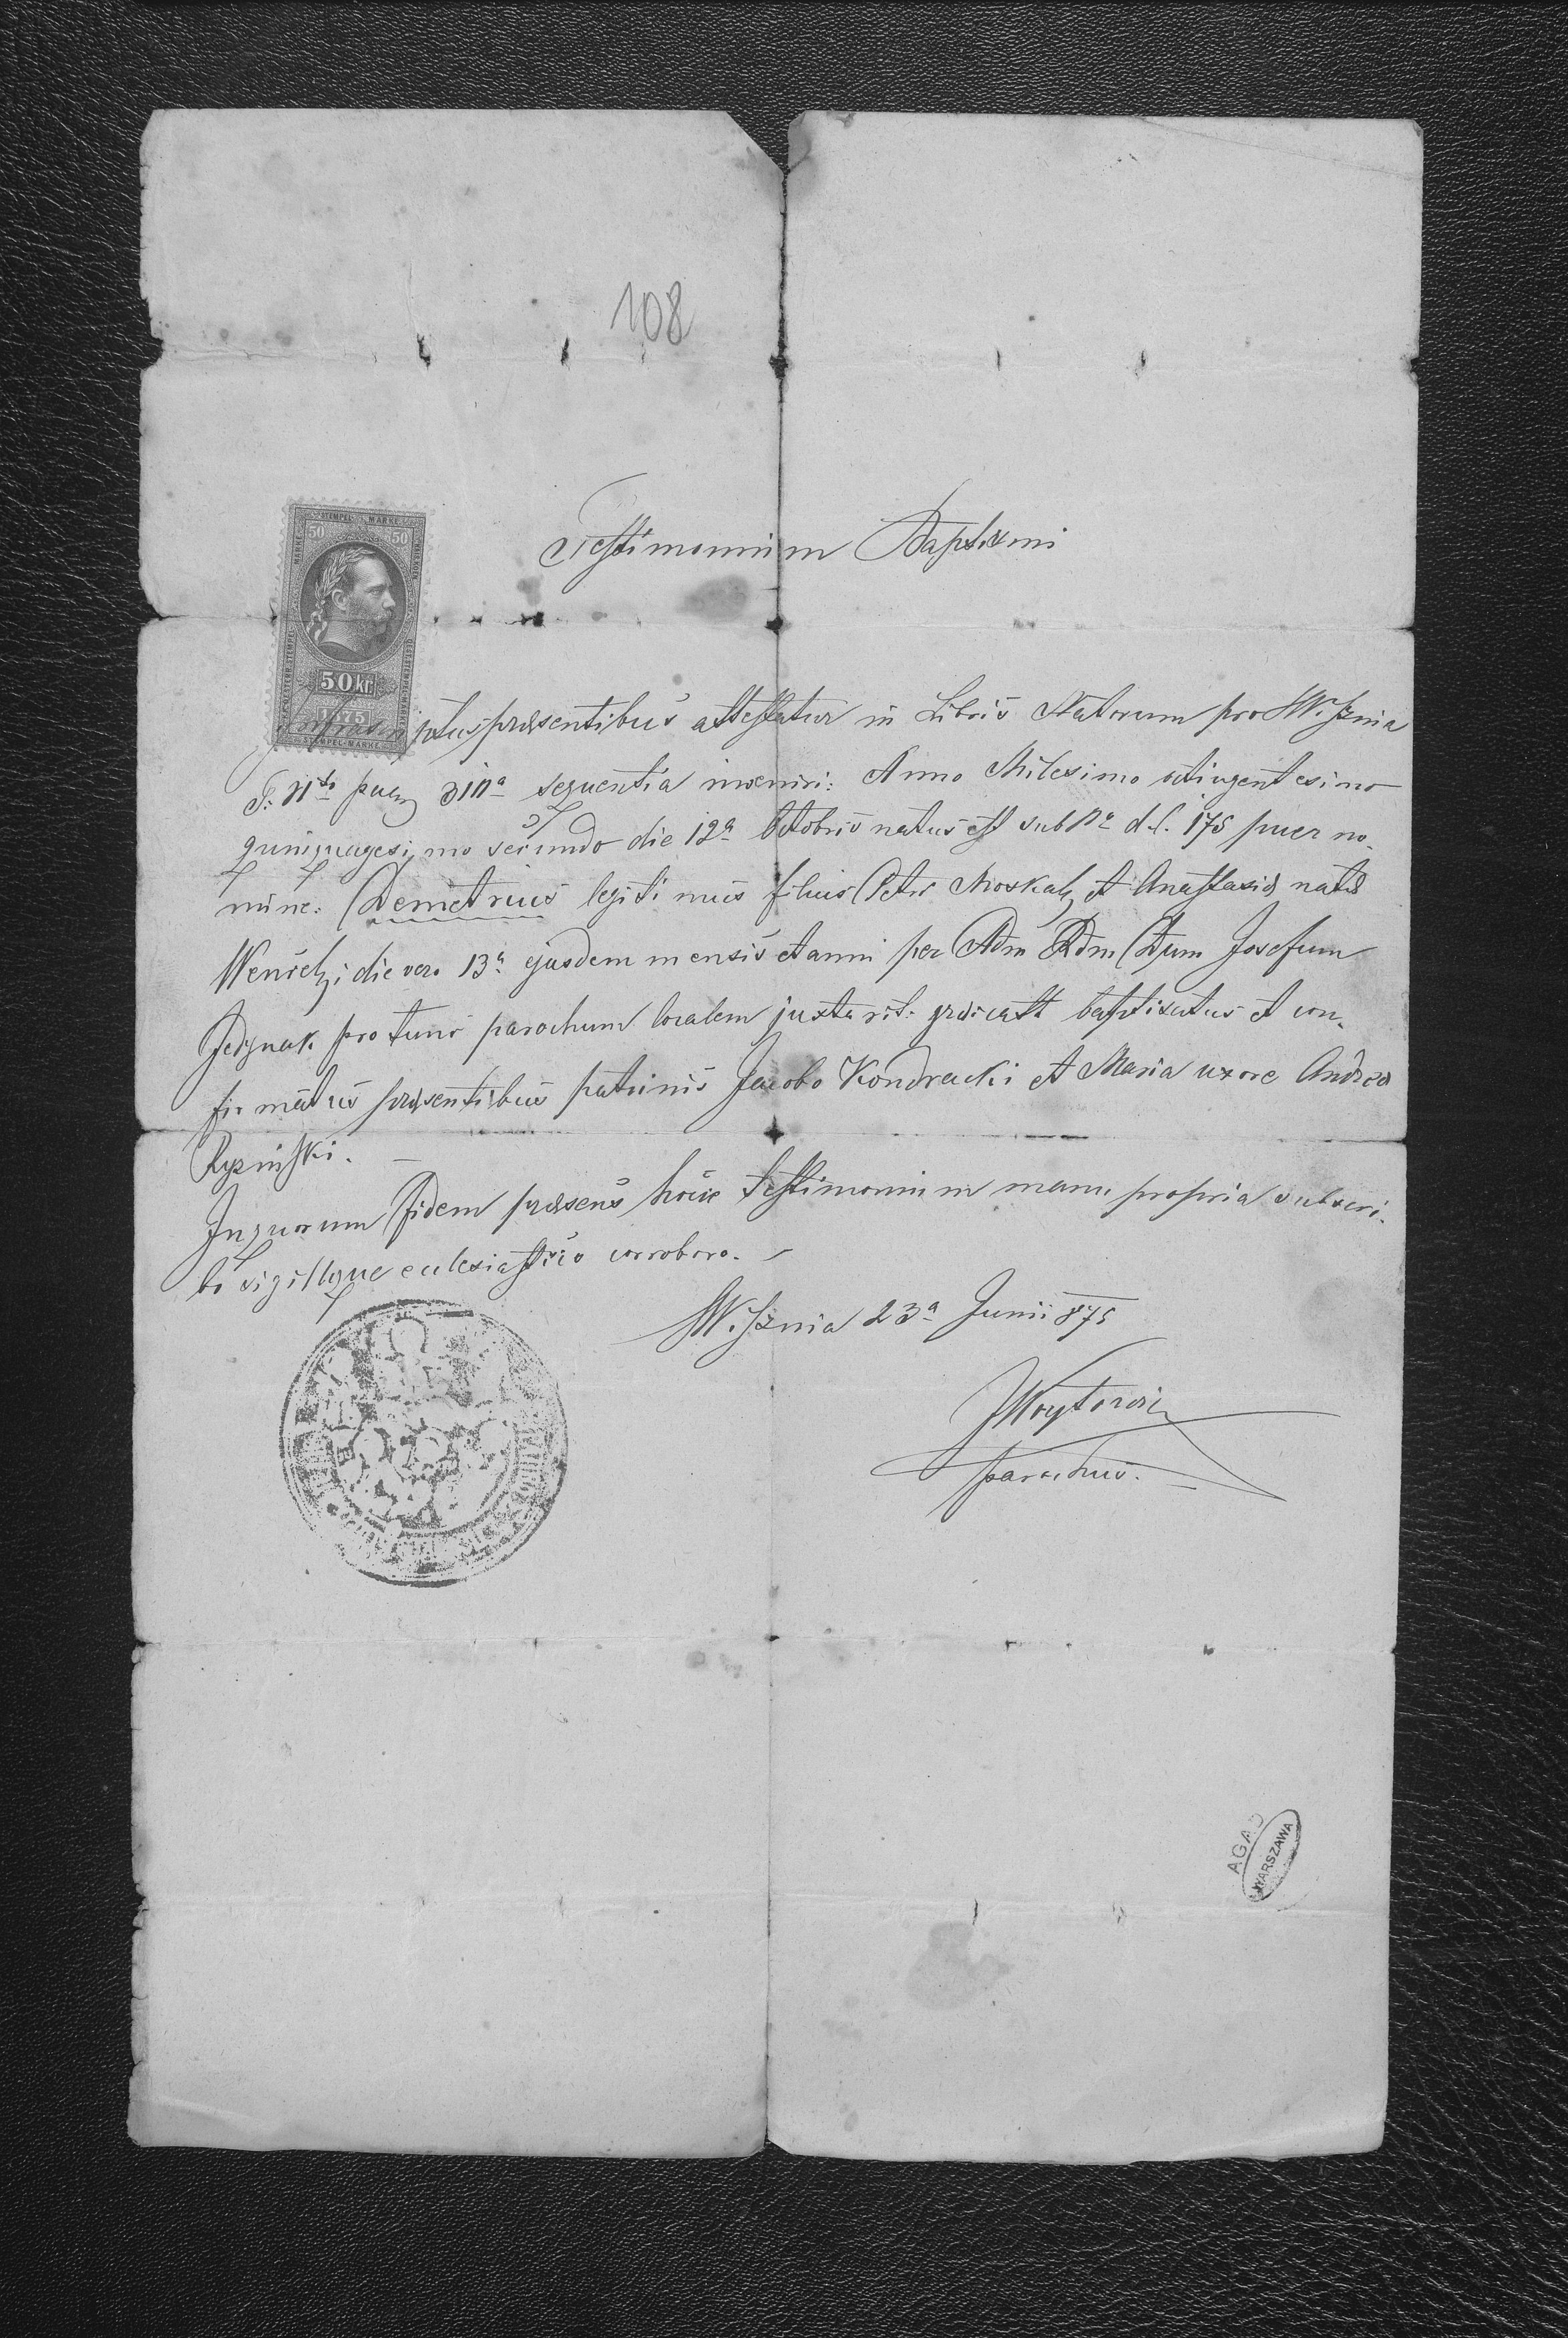 108
STEMPEL MARKE
50 50
50 kr.
1875
STEMPEL-MARKE
Testimonium Baptismi
Infrascriptus præsentibus attestatur in Libris Natorum pro Wisznia
T: IIdo pag sequentia inveniri: Anno Milesimo octingentesimo
quinquagesimo secundo die 12a Octobris natus est sub No d. 175 puer no-
mine: Demetrius legitimus filius Petri Moskal, et Anastasiæ natæ
die vero 13a ejusdem mensis et anni per Adm Rdm Dum Josefum
Jedynak pro tunc parochum localem juxta rit: græ catt baptisatus et con-
firmatus præsentibus patrinis Jacobo Kondracki et Maria uxore Andreæ
Ryznifki. —
In quorum fidem præsens hocce testimonium manu propria subscri-
bo sigilloque eclesiastico corroboro. —
Wisznia 23a Junii 875
parochus.
AGAD
WARSZAWA